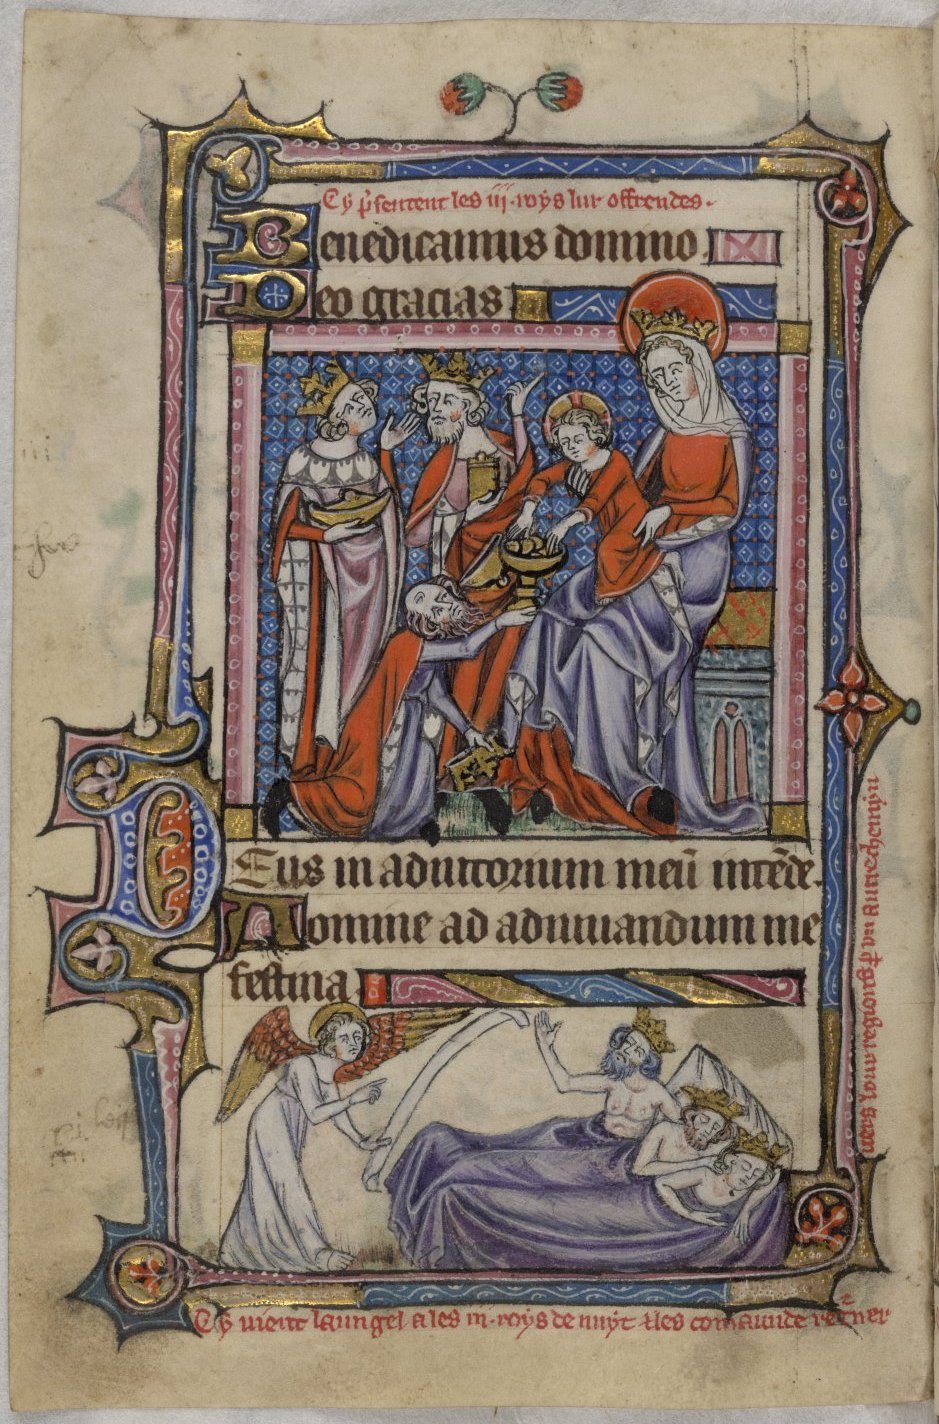 Cy p̄sentent les iij · roys lur offrendes ·
Benedicamus domino
Deo gracias
Deus in adiutorium meū intēde.
Domine ad adiuuandum me
festina
Cy vient laungel a les iij · roys de nuyt & les comaunde ret̾ner
vers lour regiouns p̄ vn autre chemyn